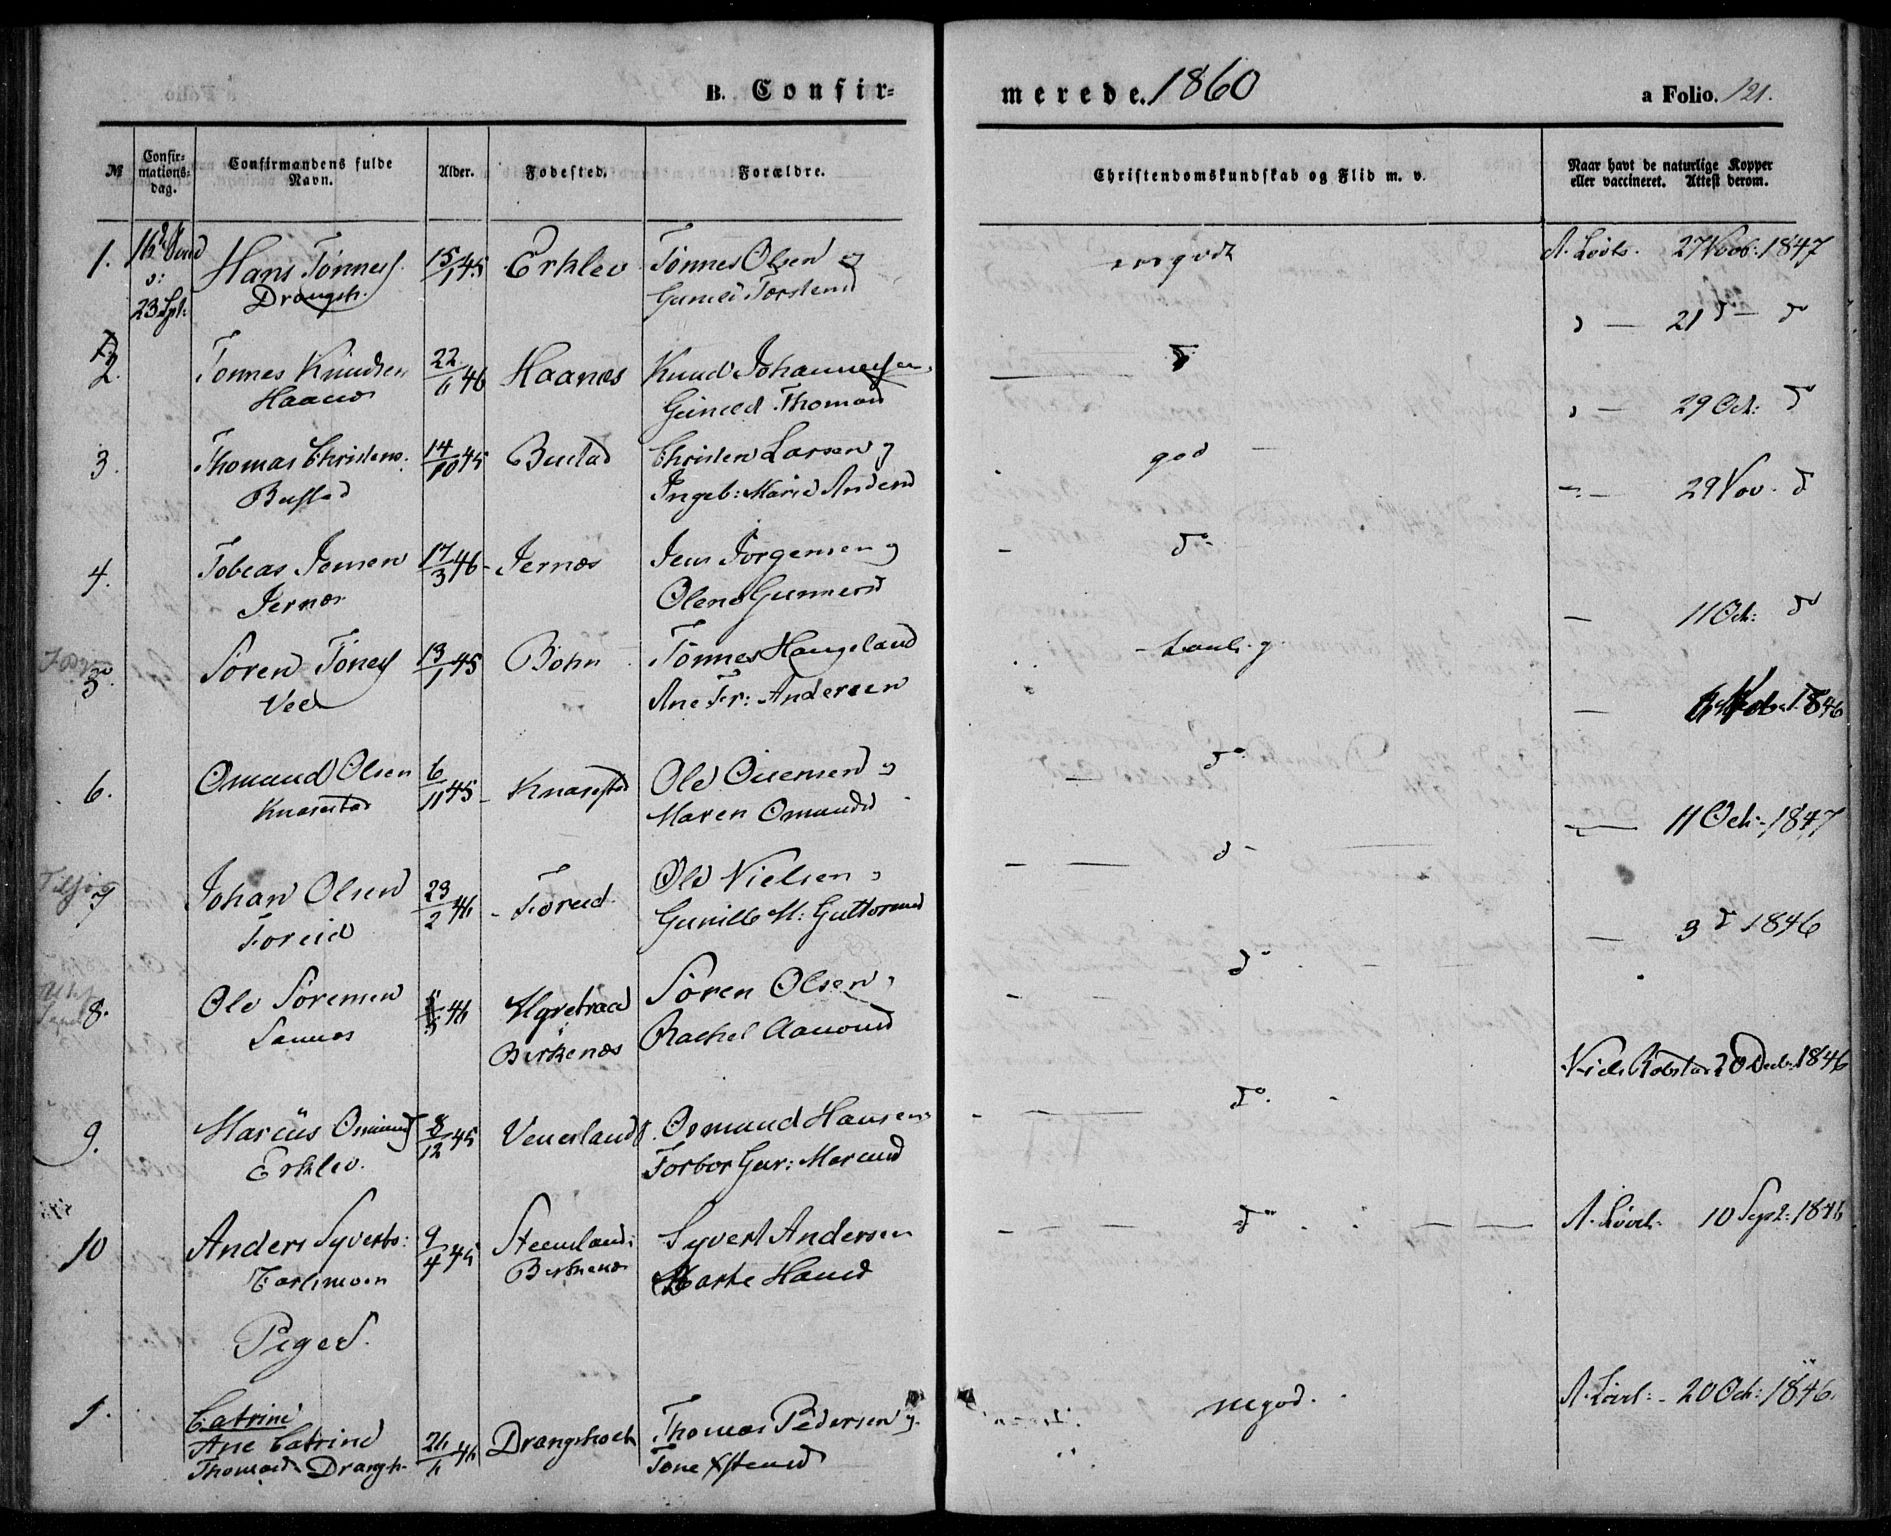 B. Confir=
merede. 1860
a Folio. 121.
№
Confir=
mations=
dag.
Confirmandens fulde
Navn.
Alder.
Fødested.
Forældre.
Christendomskundskab og Flid m. v.
Naar havt de naturlige Kopper
eller vaccineret. Attest derom.
1.
23 Spt:
Hans Tønness.
Drangsh.
15/1 45
Erklev
Tønnes Olsen og
Gunild Torstensd
megodt
A. Løvl. 27 Novb: 1847
2.
Tønnes Knudsen
Haanes
22/6 46
Haanes
Knud Johannessen
Gunild Thomasd
do
" — 21 do — do
3.
Thomas Christens.
Bustad
14/10 45
Bustad
Christen Larsen og
Ingeb: Marie Andersd
god
" — 29 Oct: do
4.
Tobias Jensen
Jernæs
17/3 46
Jernæs
Jens Jørgensen og
Olene Gunnersd
do
29 Nov. do
5.
Søren Tønness
Vee
13/1 45
Bøhn
Tønnes Haugeland
Ane Fr: Andersen
taal. g.
— 11 Oct: do
6.
Omund Olsen
Knarestad
6/11 45
Knarestad
Ole
Maren Omundsd
do
1846
7
Johan Olsen
Foreid
23/2 46
Foreid
Ole Nielsen og
Gunille M: Guttormsd
do
— 11 Oct: 1847
8.
Ole Sørensen
46
Birkenæs
Søren Olsen,
Rachel Aamonsd
do
— 3 do 1846
9.
Marcus Osmunds
Erklev.
8/12 45
Osmund Hansen
Torbor Gur:
do.
Niels 20 Decb: 1846
10
Anders Syverts:
9/4 45
Birkenæs
Syvert Andersen
Marthe Hansd
do
A. Løvl. 10 Sept: 1846
Piger.
1.
Catrine
Ane Catrine
Thomasd Drangsh.
26/6 46
Drangsholt
Thomas Pedersen og
Tone
megod.
A. Løvl: - 20 Oct: 1846.